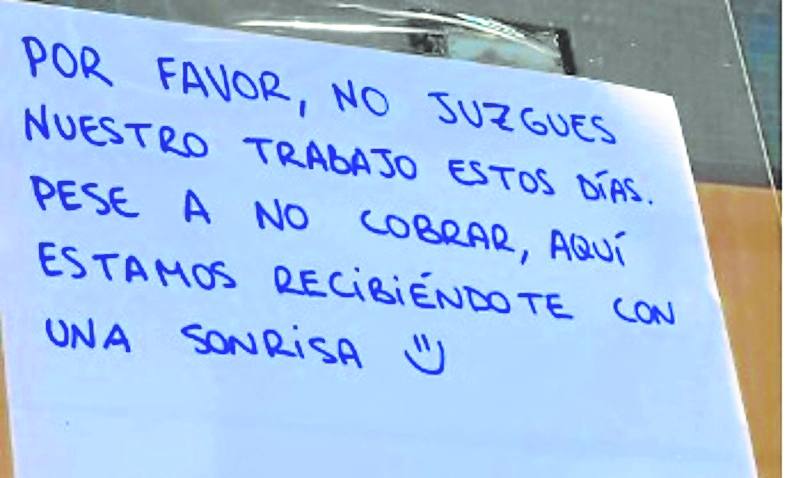 POR FAVOR, NO JUZGUES
NUESTRO TRABAJO ESTOS DÍAS.
PESE A NO COBRAR, AQUÍ
ESTAMOS RECIBIÉNDOTE CON
UNA SONRISA